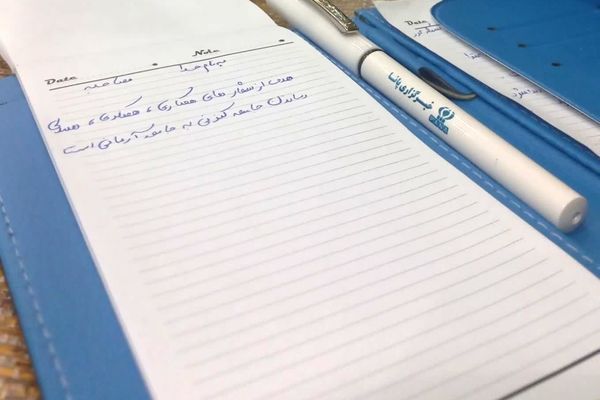 Date Note
به نام خدا
مصاحبه
هدف از شعار های همکاری، همفکری، همدلی
رساندن جامعه کنونی به جامعه آرمانی است
خبرگزاری پانا